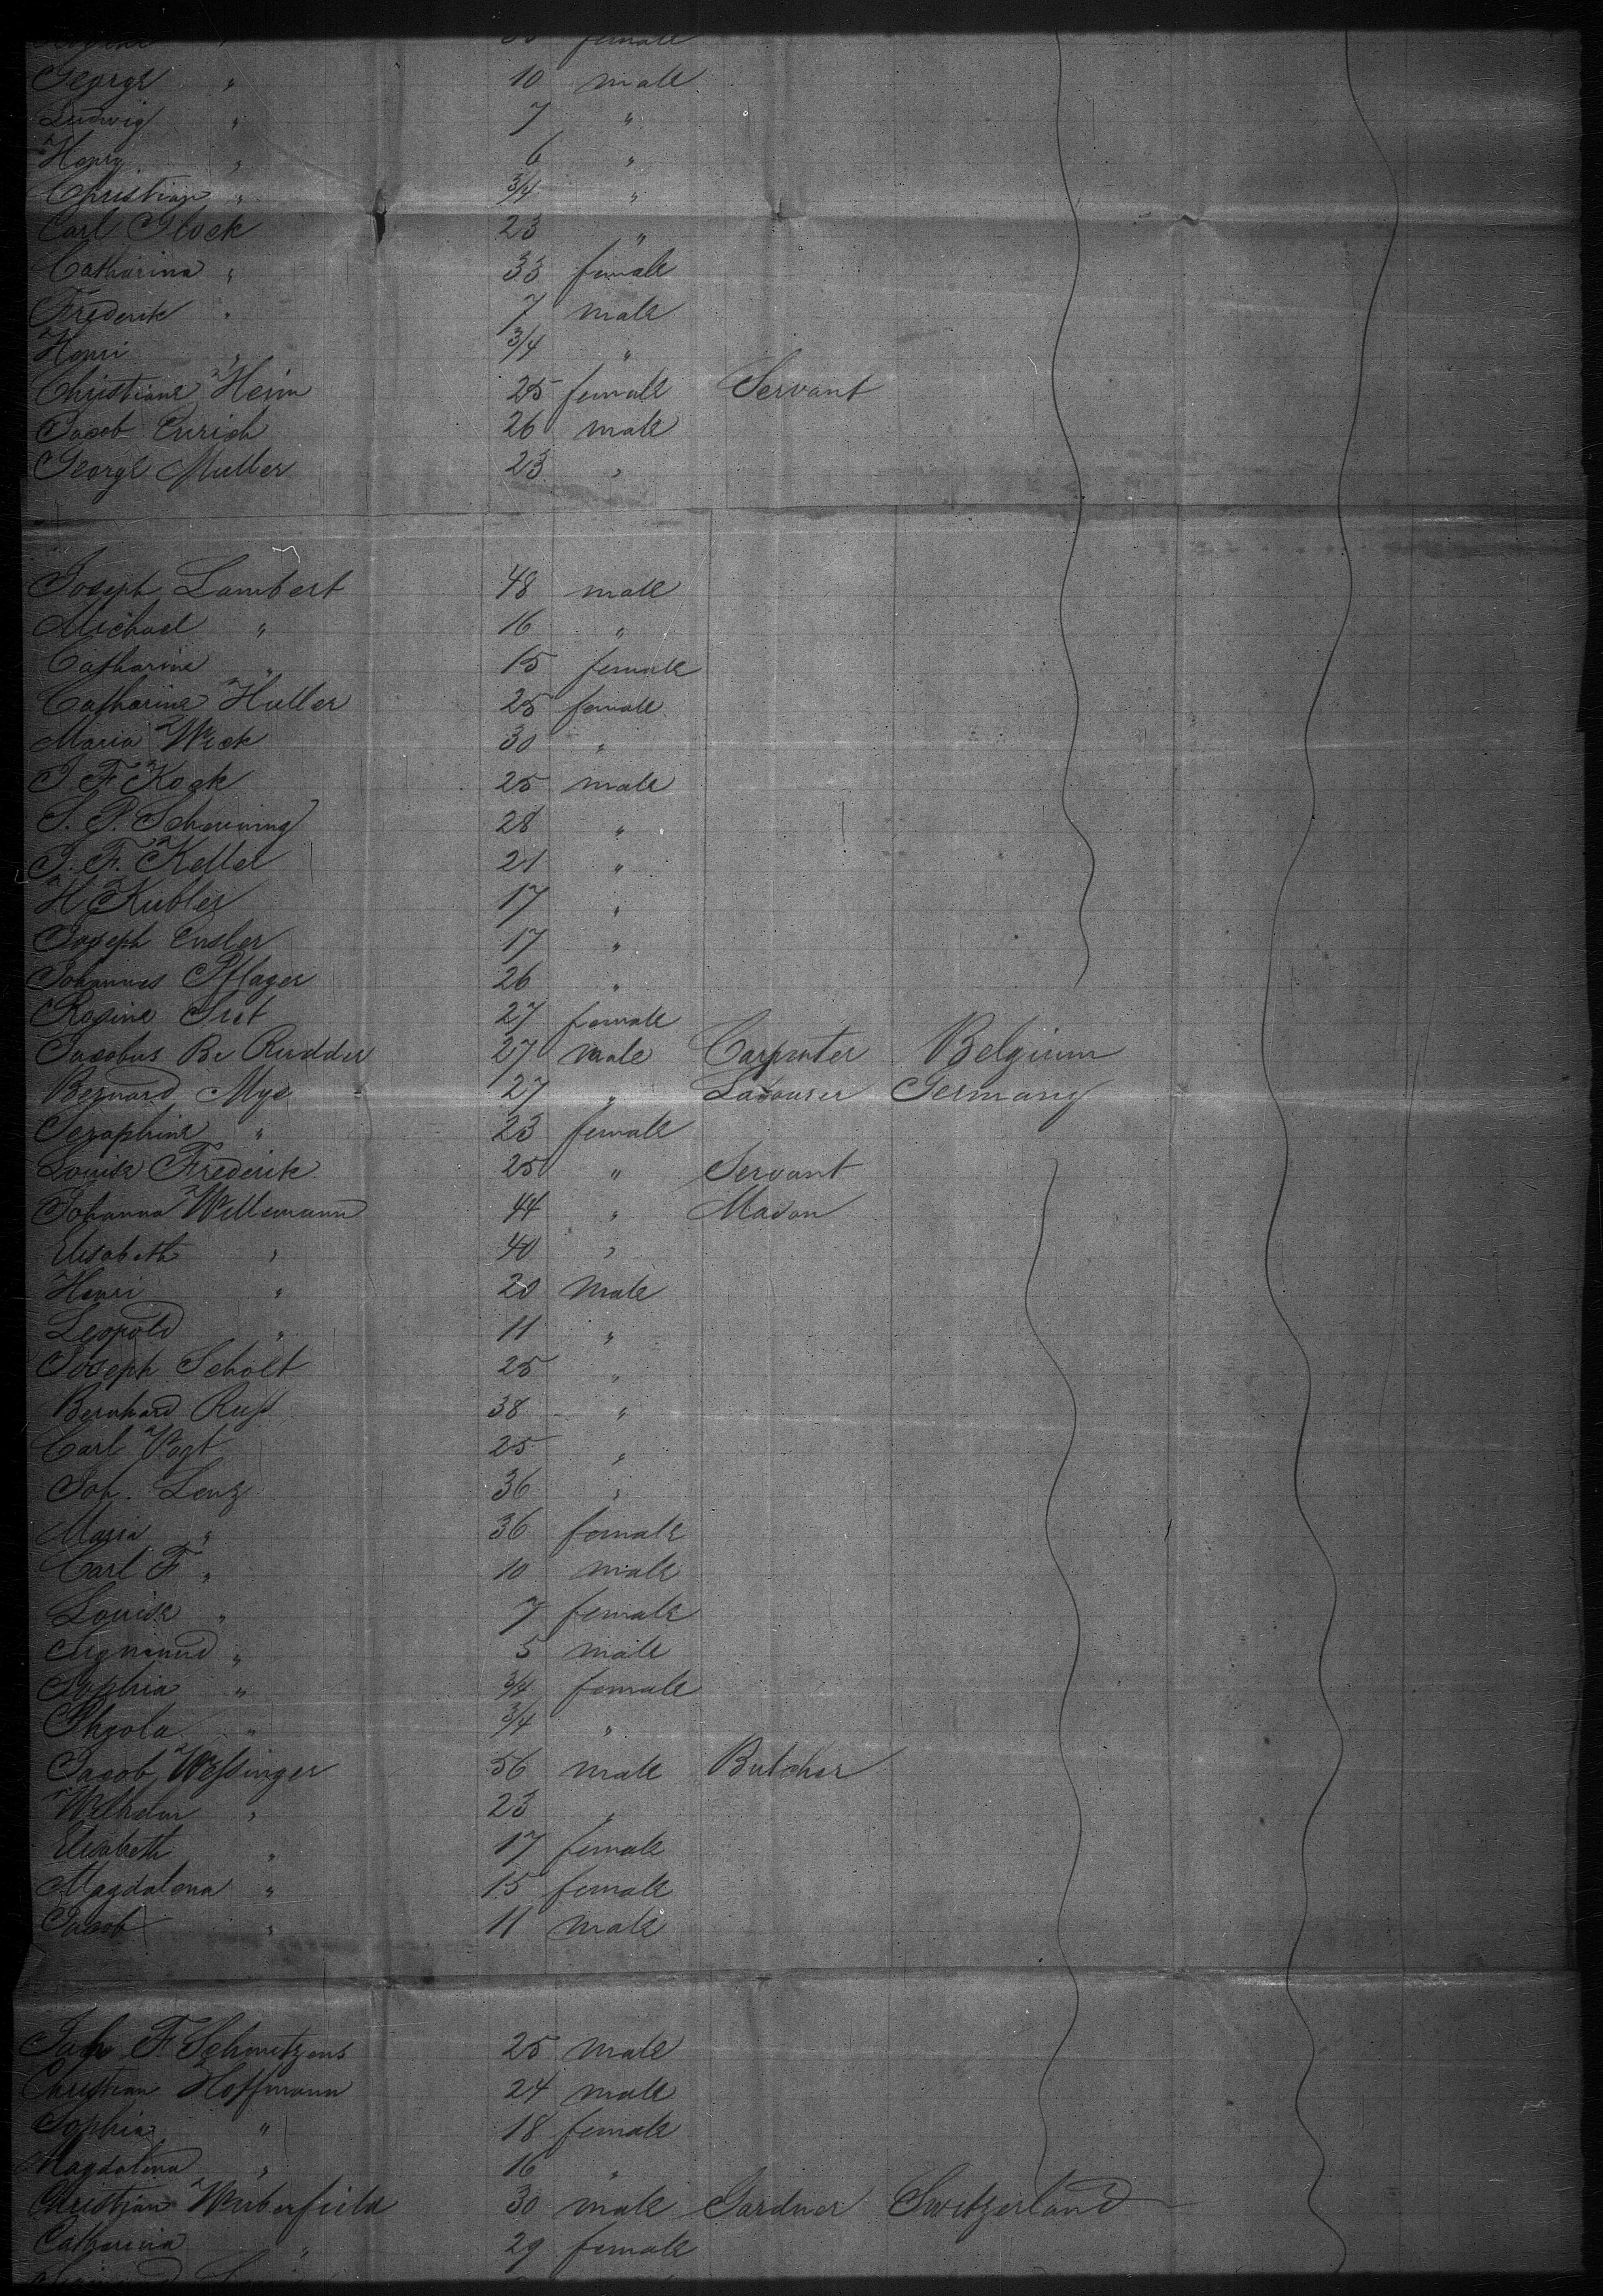 female
George " 10 male
Ludwig " 7 "
Henry " 6 "
Christian " 3/4 "
Carl Glock 23 "
Catharina " 33 female
Frederik " 7 male
Henri " 3/4 "
Christiane Heim 25 female Servant
Jacob Enrich 26 male
George Muller 23 "
Joseph Lambert 48 male
Michael " 16 "
Catharine " 15 female
Catharine Huller 25 female
Maria Wick 30 "
J F Kock 25 male
S. P. 28 "
J. F. Keller 21 "
H Kubler 17 "
Joseph Ensler 17 "
Johannes Pflager 26 "
Rosine 27 female
Jacobus De Rudder 27 male Carpenter Belgium
Bernard Mys 27 " Labourer Germany
Seraphine " 23 female
Louise Frederik 25 " Servant
Johanna Willemann 44 " Mason
Elisabeth " 40 "
Henri " 20 Male
Leopold " 11 "
Joseph Scholt 25 "
Bernhard Ruß 38 "
Carl Vogt 25 "
Joh. Lenz 36 "
Maria " 36 female
Carl F " 10 male
Louise " 7 female
Sigmund " 5 male
Sophia " 3/4 female
" 3/4 "
Jacob Weßinger 56 male Butcher
Wilhelm " 23 "
Elisabeth " 17 female
Magdalena " 15 female
Jacob " 11 male
F. Schmitzens 25 male
Christian Hoffmann 24 male
Sophia " 18 female
Magdalena " 16 "
Christian Wuberfield 30 male Gardner Switzerland
Catharina " 29 female